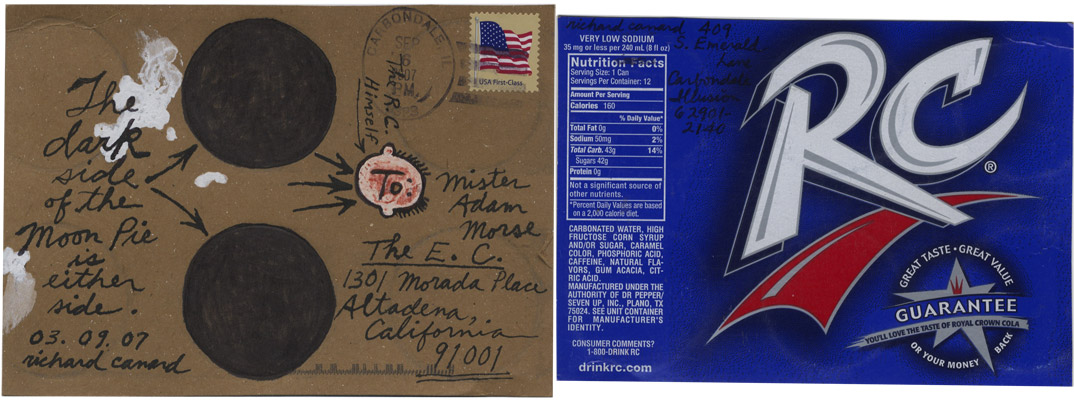 The
dark
side
of the
Moon Pie
is
either
side.
03.09.07
richard canard
CARBONDALE IL
SEP
16
PM
USA First-Class
The R.C.
Himself
To:
Mister
Adam
Morse
The E. C.
1301 Morada Place
Altadena,
California
91001
richard canard 409
S. Emerald
Lane
Carbondale
Illusion
62901-
2140
VERY LOW SODIUM
35 mg or less per 240 mL (8 fl oz)
Nutrition Facts
Serving Size: 1 Can
Servings Per Container: 12
Amount Per Serving
Calories 160
% Daily Value*
Total Fat 0g 0%
Sodium 50mg 2%
Total Carb. 43g 14%
Sugars 42g
Protein 0g
Not a significant source of
other nutrients.
*Percent Daily Values are based
on a 2,000 calorie diet.
CARBONATED WATER, HIGH
FRUCTOSE CORN SYRUP
AND/OR SUGAR, CARAMEL
COLOR, PHOSPHORIC ACID,
CAFFEINE, NATURAL FLA-
VORS, GUM ACACIA, CIT-
RIC ACID.
MANUFACTURED UNDER THE
AUTHORITY OF DR PEPPER/
SEVEN UP, INC., PLANO, TX
75024. SEE UNIT CONTAINER
FOR MANUFACTURER'S
IDENTITY.
CONSUMER COMMENTS?
1-800-DRINK RC
drinkrc.com
RC®
GREAT TASTE • GREAT VALUE
GUARANTEE
YOU'LL LOVE THE TASTE OF ROYAL CROWN COLA
OR YOUR MONEY BACK